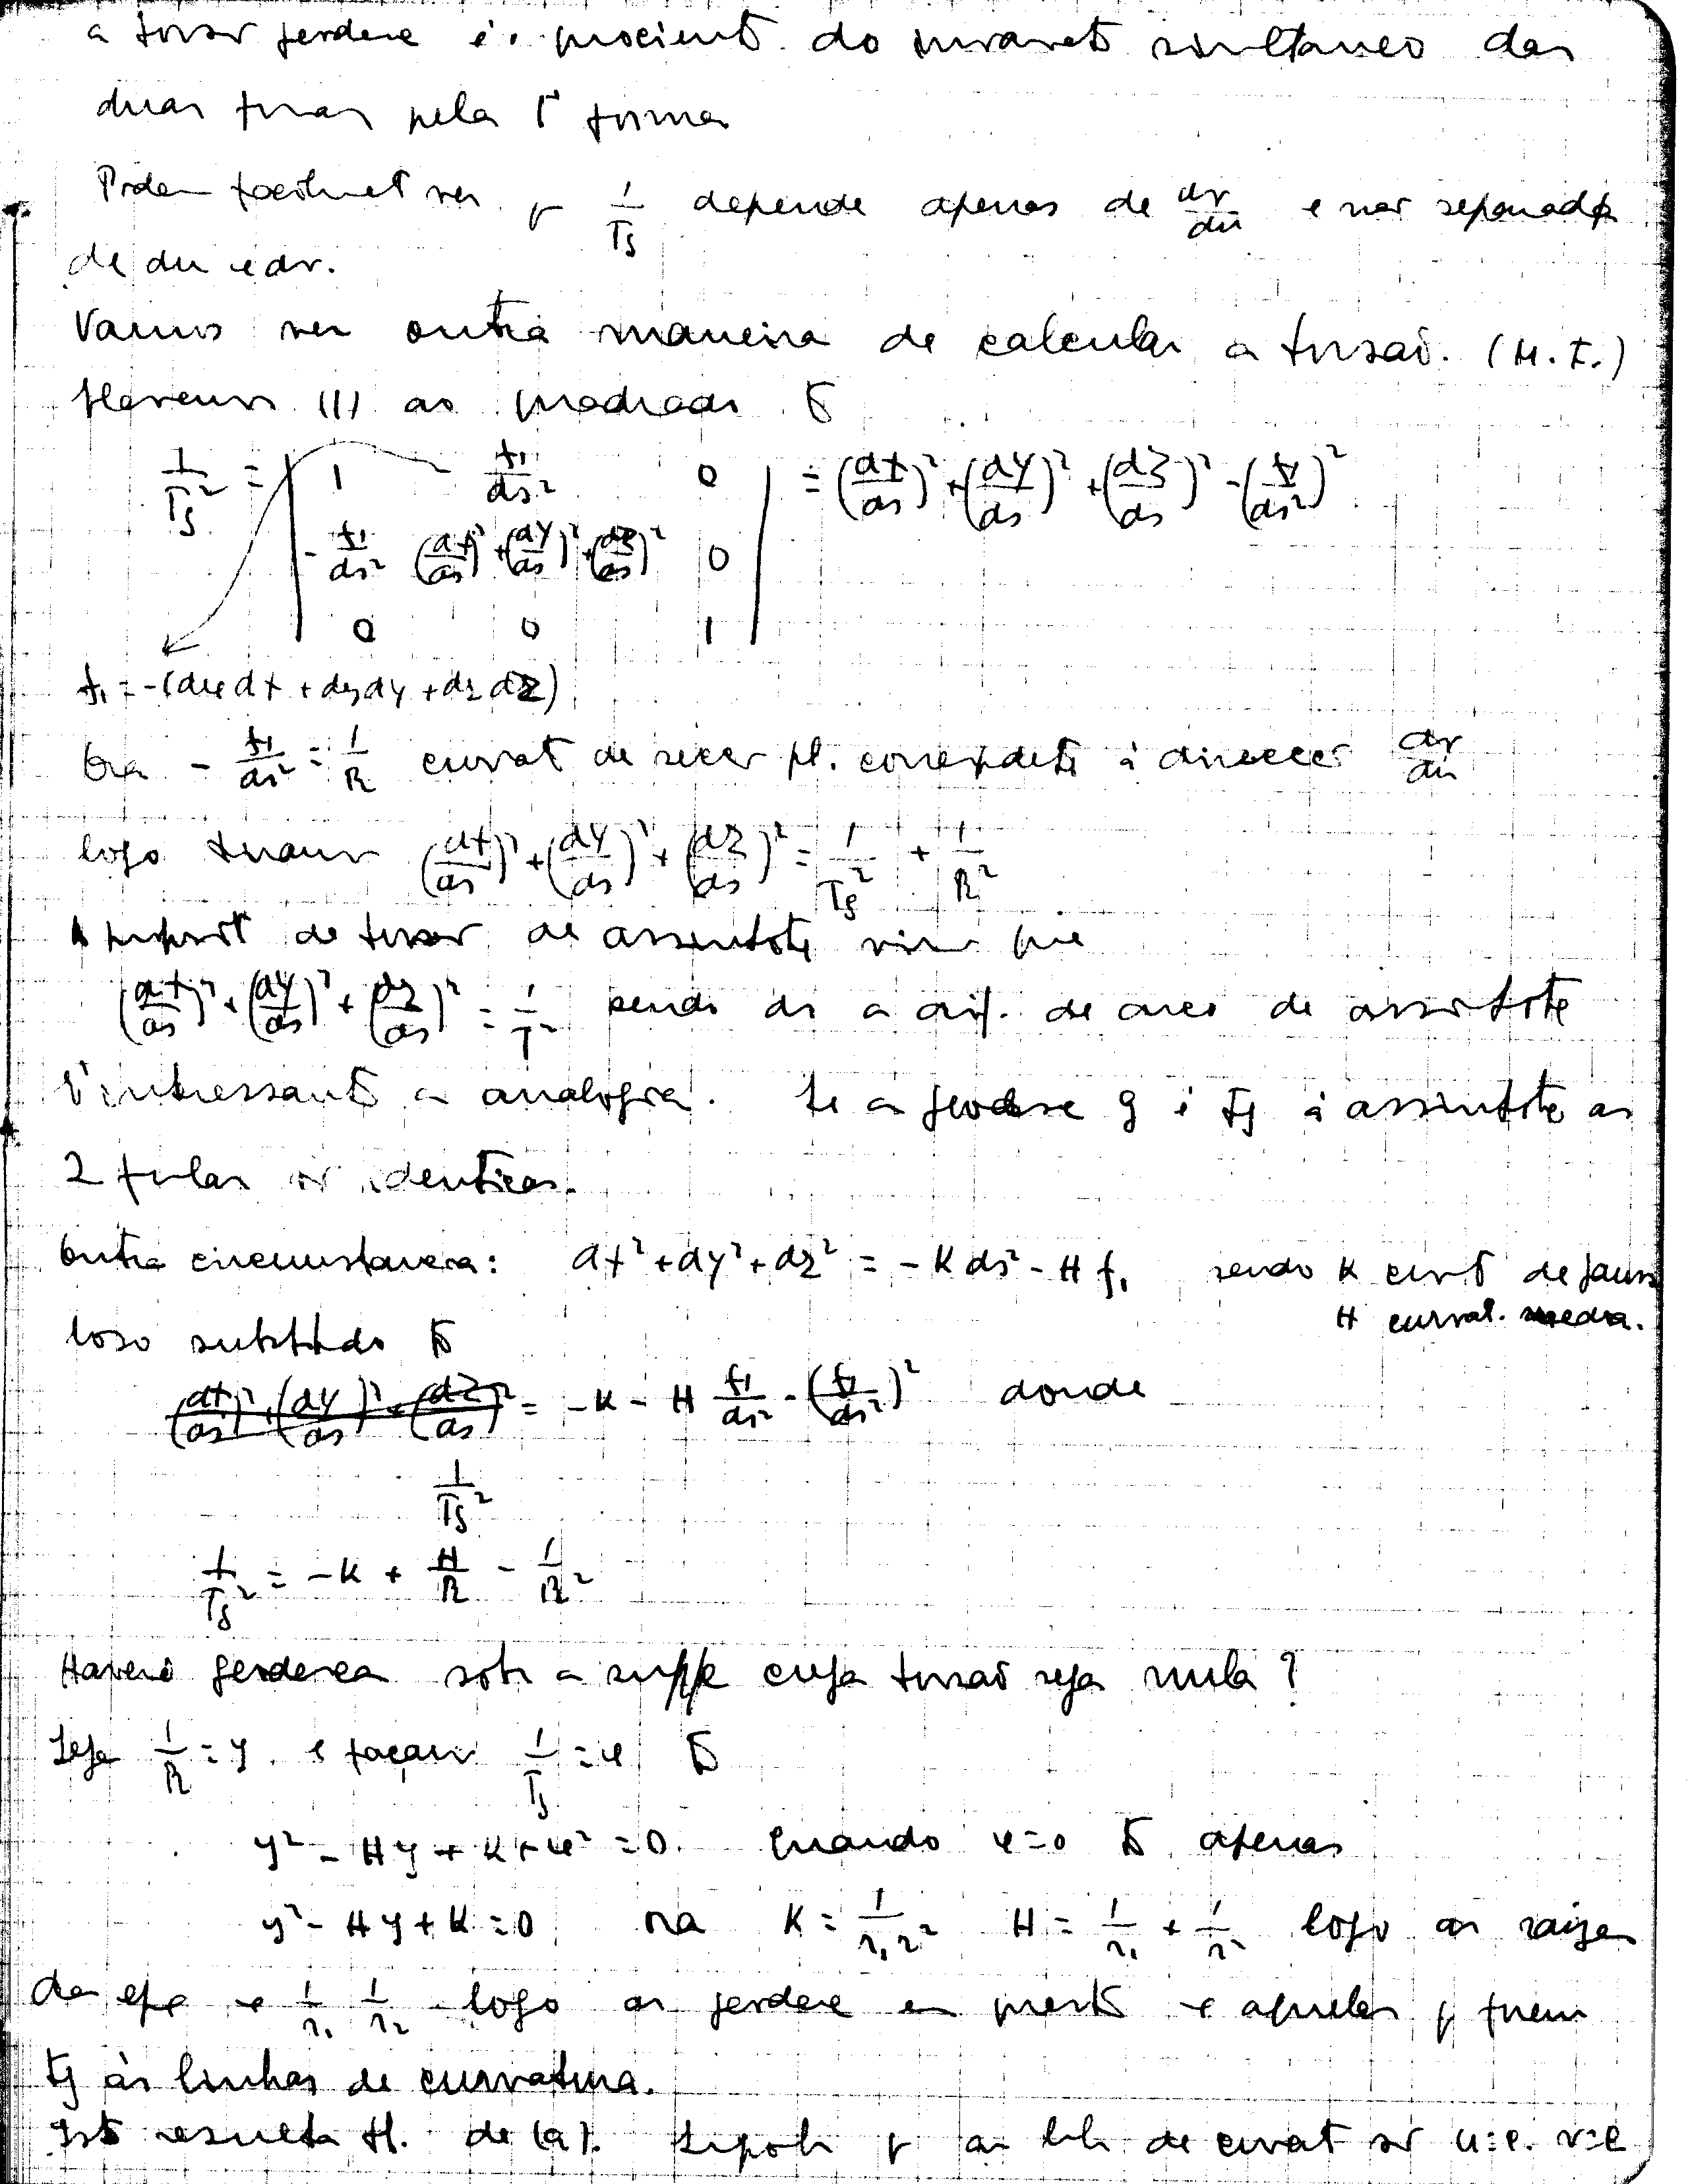 a torsão geodes é o quocient do invariant simultaneo das
duas formas pela 1ª forma
Podem facilmet ver q 1/Tg depende apenas de dv/du e não separada
de du e dv.
Vamos ver outra maneira de calcular a torsão. (M. F.)
Elevemos (1) ao quadrado
1/Tg² = | 1 f₁/ds² 0 | = (dX/ds)² + (dY/ds)² + (dZ/ds)² - (f₁/ds²)²
- f₁/ds² (dX/ds)² + (dY/ds)² + (dZ/ds)² 0
0 0 1
f₁ = -(dx dX + dy dY + dz dZ)
Ora - f₁/ds² = 1/R curvat de secção pl. correspdete à direcção dv/du
logo (dX/ds)² + (dY/ds)² + (dZ/ds)² = 1/Tg² + 1/R²
A propost de torsão de assintote vim que
(dX/ds)² + (dY/ds)² + (dZ/ds)² = 1/T² sendo ds a dif. de arco de assintote
É interessant a analogia. Se a geodese g é tg à assintote as
2 são identicas.
Outra circumstancia: dX² + dY² + dZ² = -K ds² - H f₁ sendo K curvt de gauss
H curvat. media.
logo substitdo
(dX/ds)² + (dY/ds)² + (dZ/ds)² = -K - H f₁/ds² - (f₁/ds²)² donde
1/Tg²
1/Tg² = -K + H/R - 1/R²
Haverá geodesica sobr a suppe cuja torsão seja nula?
Seja 1/R = y e façam 1/Tg = x
y² - Hy + K + x² = 0. Quando x=0 apenas
y² - Hy + K = 0 ora K = 1/r₁r₂ H = 1/r₁ + 1/r₂ logo as raizes
da eq 1/r₁ 1/r₂ logo as geodese em quest são aquelas q forem
tg às linhas de curvatura.
Ist resulta tb. de (a). Supoh q as lh de curvat são u=c. v=c